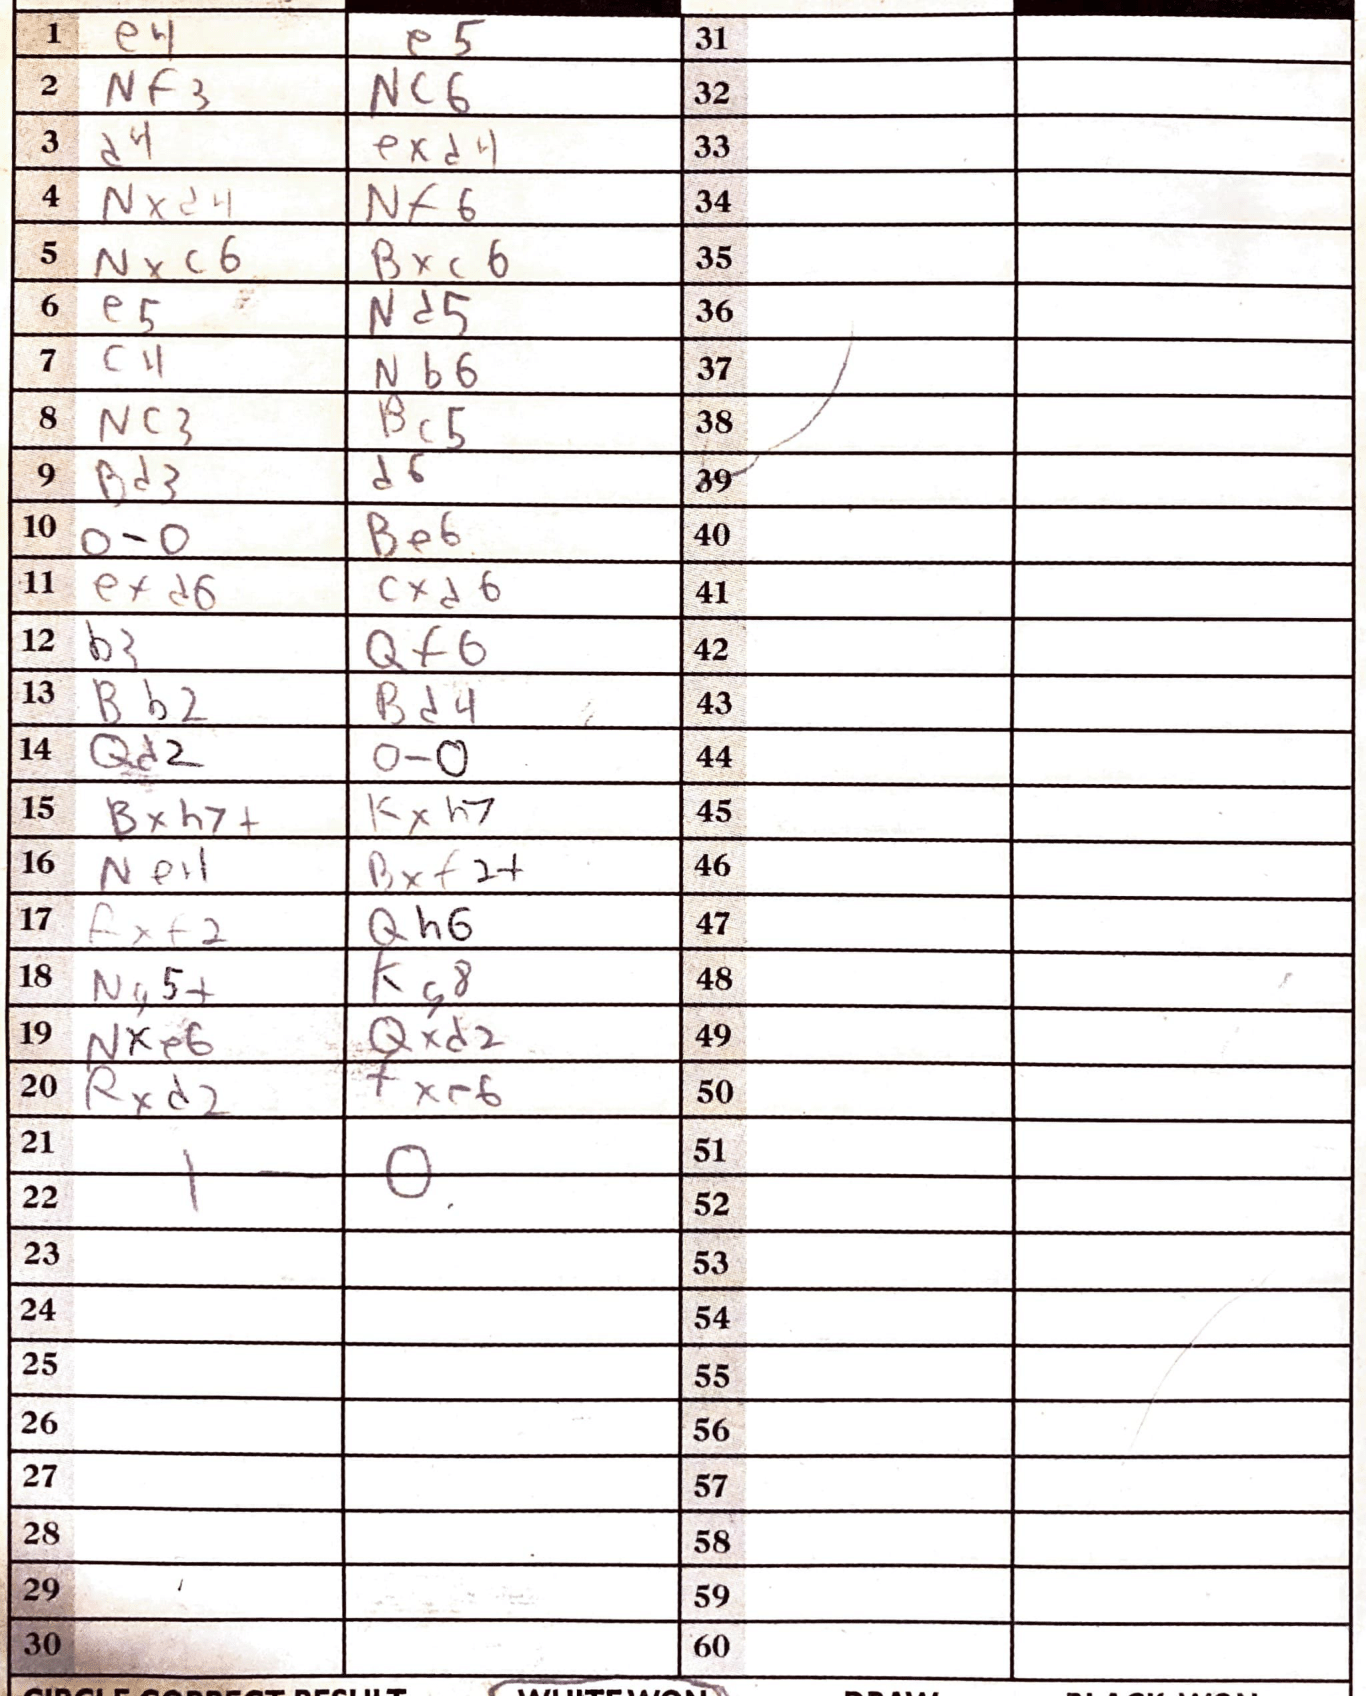 1 e4 e5 31
2 Nf3 NC6 32
3 d4 exd4 33
4 Nxd4 Nf6 34
5 Nxc6 Bxc6 35
6 e5 Nd5 36
7 C4 Nb6 37
8 NC3 Bc5 38
9 Bd3 d6 39
10 0-0 Be6 40
11 exd6 cxd6 41
12 b3 Qf6 42
13 Bb2 Bd4 43
14 Qd2 0-0 44
15 Bxh7+ Kxh7 45
16 Ne4 Bxf2+ 46
17 Rxf2 Qh6 47
18 Ng5+ Kg8 48
19 Nxe6 Qxd2 49
20 Rxd2 fxe6 50
21 51
1 - 0
22 52
23 53
24 54
25 55
26 56
27 57
28 58
29 59
30 60
CIRCLE CORRECT RESULT WHITE WON DRAW BLACK WON